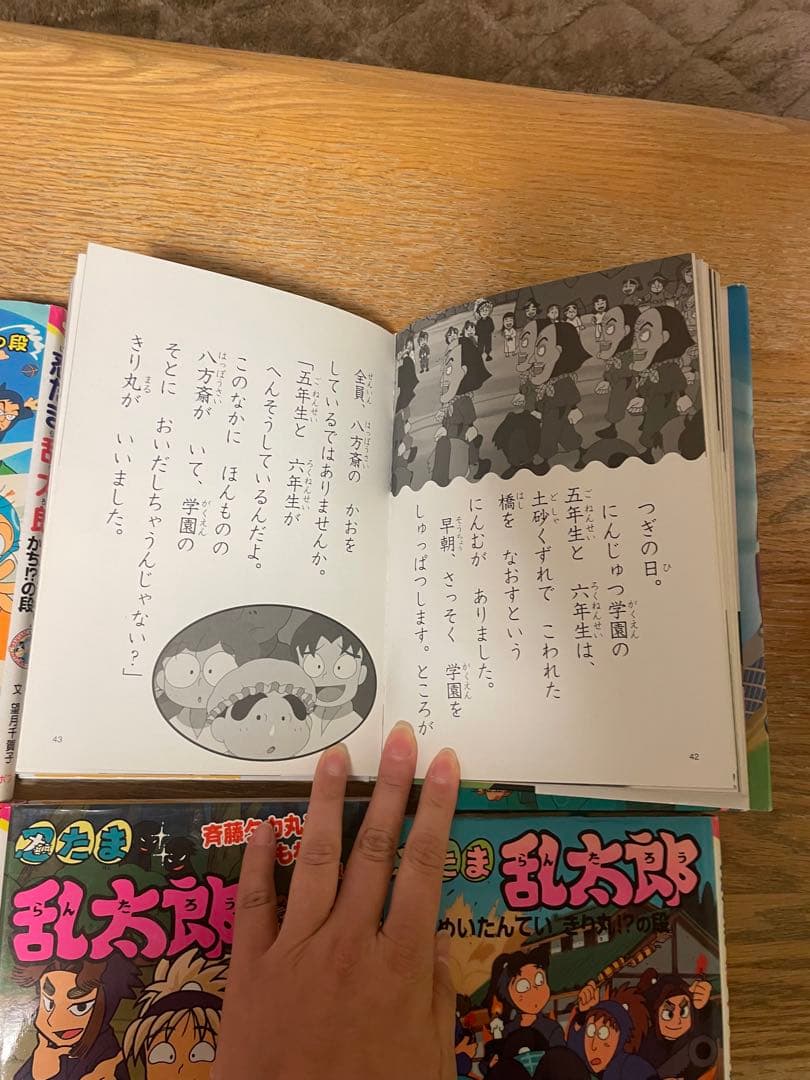 つぎの日。
にんじゅつ学園の
五年生と 六年生は、
土砂くずれで こわれた
橋を なおすという
にんむが ありました。
早朝、さっそく 学園を
しゅっぱつします。ところが
42
全員、八方斎の かおを
しているではありませんか。
「五年生と 六年生が
へんそうしているんだよ。
このなかに ほんものの
八方斎が いて、学園の
そとに おいだしちゃうんじゃない？」
きり丸が いいました。
43
の段
忍たま 乱太郎
かち!?の段
文 望月千賀子
忍たま
斉藤タカ丸
乱太郎
らんたろう
たま
乱太郎
らんたろう
めいたんてい きり丸!?の段